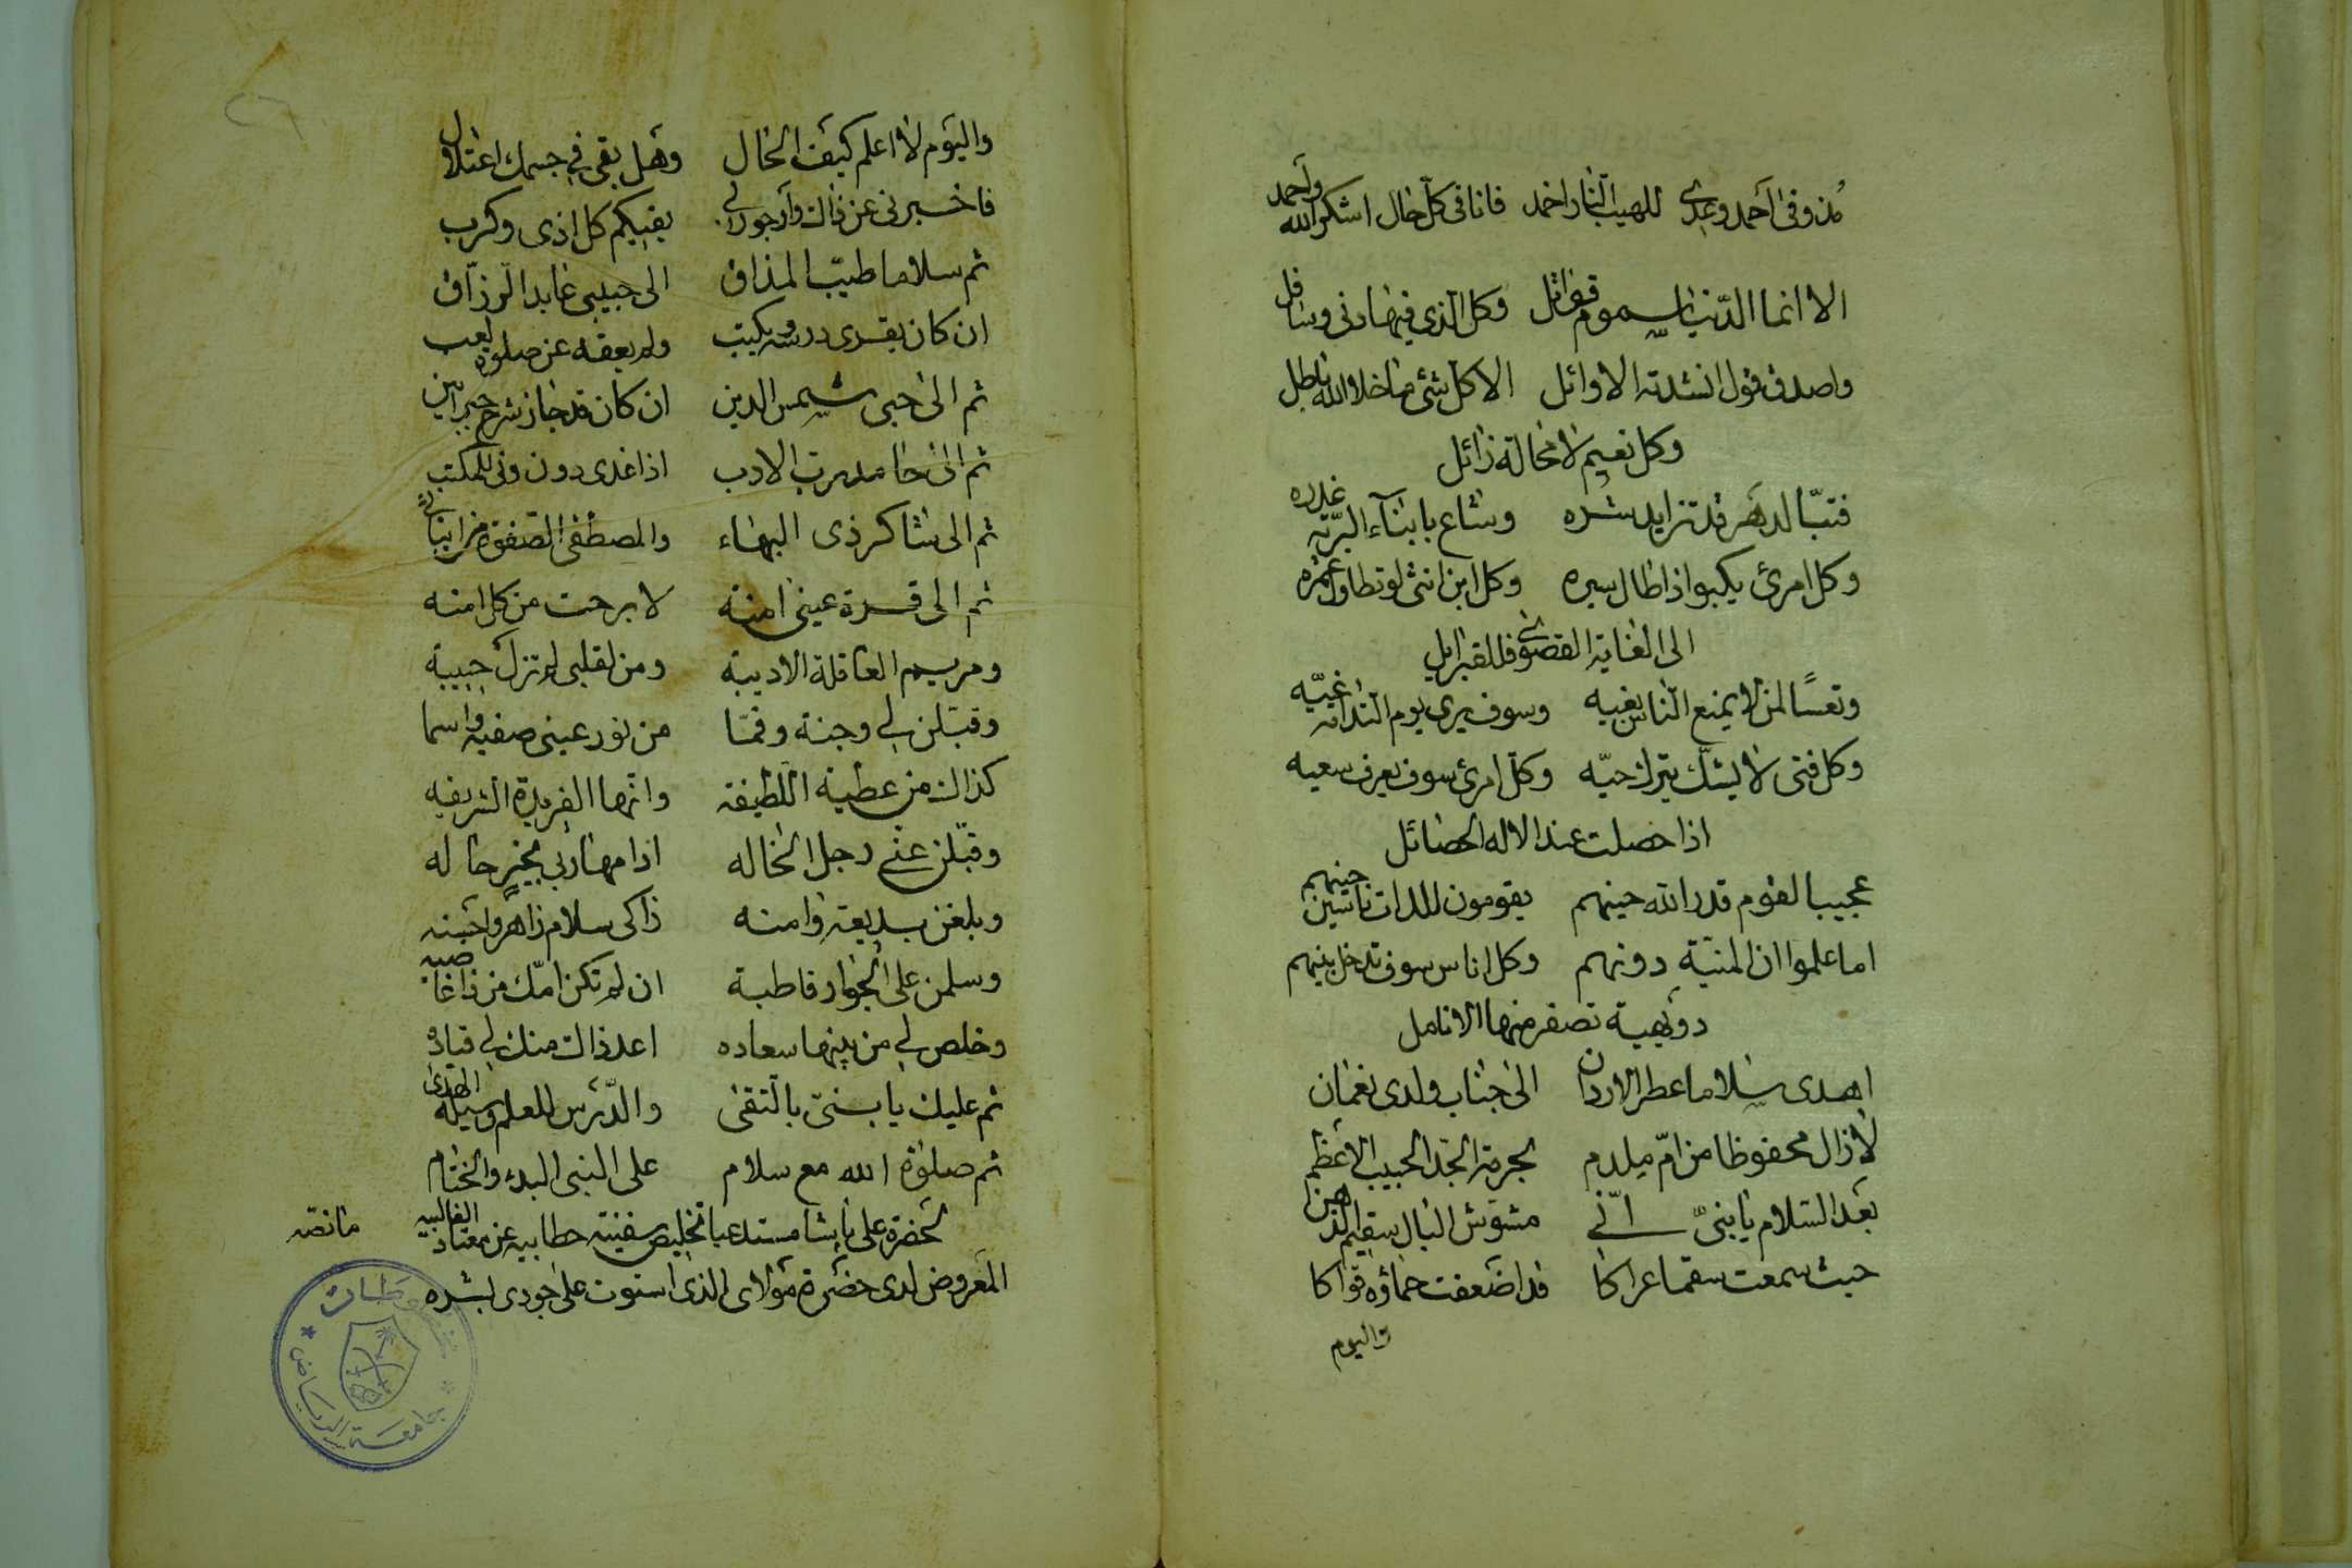 مذ وفى احمد وعدى للهيب النار اخمد فانا فى كل حال اشكر الله واحمد
الا انما الدنيا سموم قواتل وكل الذى فيها دنى وسافل
واصدق قول انشدته الاوائل الا كل شئ ما خلا الله باطل
وكل نعيم لا محالة زائل
فتبّا لدهر قد تزايد شره وشاع بابناء البريّة غدره
وكل امرئ يكبو اذا طال سيره وكل ابن انثى لو تطاول عمره
الى الغاية القصوى فللقبر ايل
وتعسًا لمن لا يمنع الناس بغيه وسوف يرى يوم الندامة غيّه
وكل فتى لا يشك يترك حيّه وكل امرئ سوف يعرف سعيه
اذا حصلت عند الاله الحصائل
عجيبا لقوم قدر الله حينهم يقومون للذات ناسين حينهم
اما علموا ان المنيّة دونهم وكل اناس سوف تدخل بينهم
دويهية تصفر منها الانامل
اهدى سلاما عطر الاردان الى جناب ولدى نعمان
لا زال محفوظا من امّ ملدم بحرمة الجد الحبيب الاعظم
بعد السلام يا بنىّ انّى مشوّش البال سقيم الذهن
حيث سمعت سقما عراكا قد اضعفت حماؤه قواكا
واليوم
واليوم لا اعلم كيف الحال وهل بقى فى جسمك اعتلال
فاخبرنى عن ذاك وارجو لى يقيكم كل اذى وكرب
ثم سلاما طيّب المذاق الى حبيبى عابد الرزّاق
ان كان يقرى درسه ويكتب ولم يعقه عن صلوة لعب
ثم الى حبى شمس الدين ان كان قد جاز شرح
ثم الى حامد رب الادب اذا غدى دون ونى للمكتب
ثم الى شاكر ذى البهاء والمصطفى الصفوة من ابنائى
ثم الى قرة عينى امنه لا برحت من كل امنه
ومريم العاقلة الاديبة ومن لقلبى لم تزل حبيبة
وقبّلن لى وجنة وفمّا من نور عينى صفية واسما
كذاك من عطية اللطيفه وانّها الفريدة الشريفه
وقبّلن عنى رجل الخاله اذا مهاربى بخير حاله
وبلغن بديعة وامنه ذاكى سلام زاهر واحسنه
وسلمن على الجوار قاطبة ان لم تكن امّك من ذا غاضبه
وخلص لى من بينها سعاده اعد ذاك منك لى قياده
ثم عليك يا بنىّ بالتقى والدّرس للعلم وسيلة الهدى
ثم صلوة الله مع سلام على النبى البدء والختام
لحضرة على باشا مستدعيا تخليص سفينة حطابيه عن معتاد الغالبيه ما نصّه
المعروض لدى حضرة مولاى الذى استوت على جودى بشره
جامعة الرياض